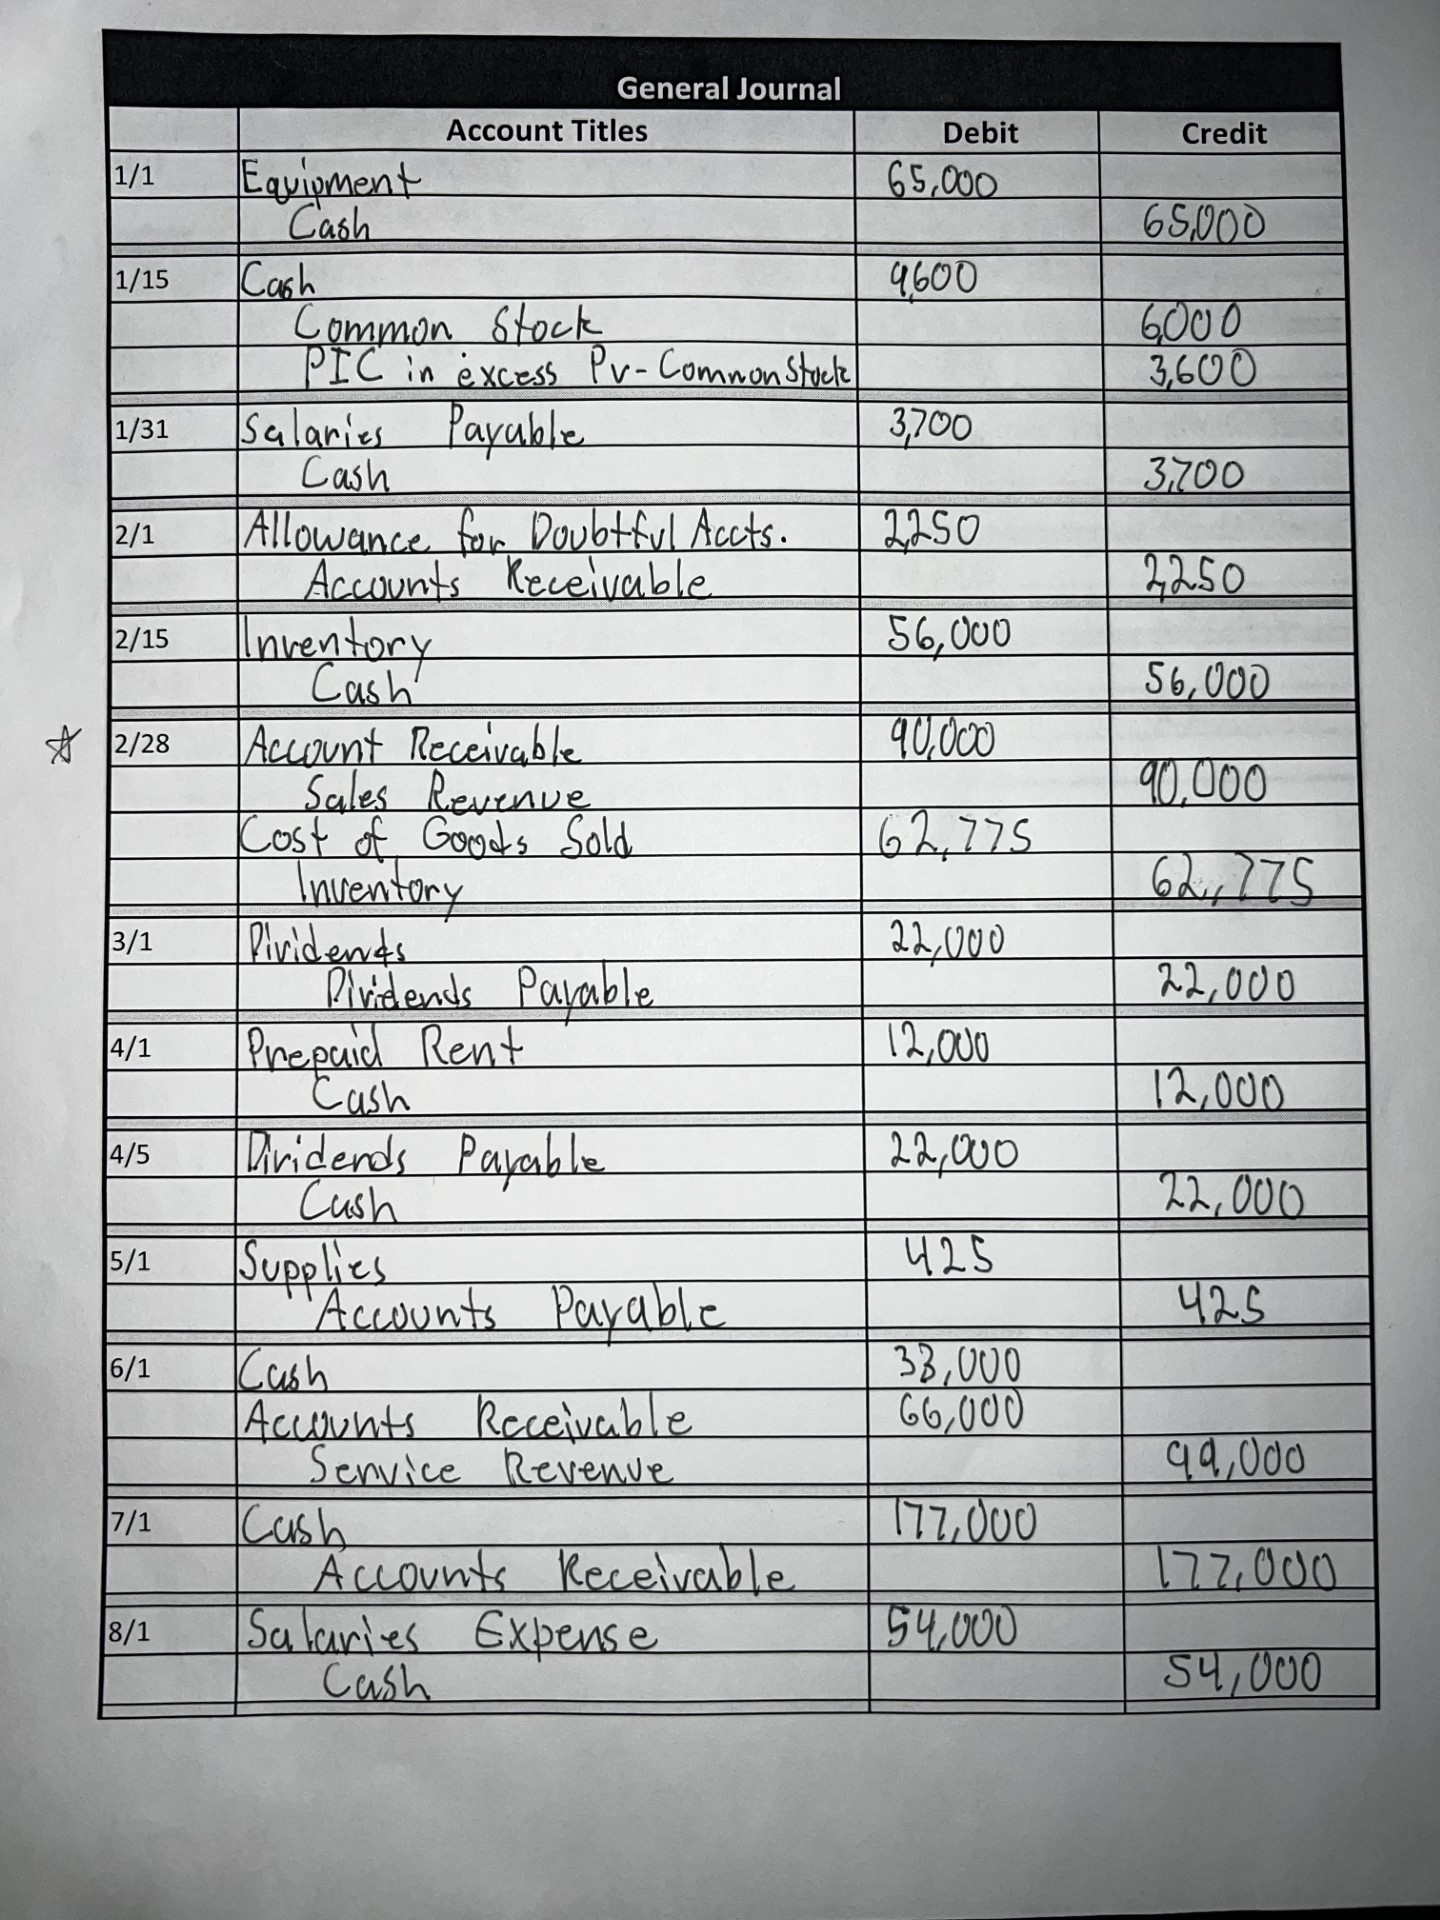 General Journal
Account Titles Debit Credit
1/1 Equipment 65,000
Cash 65,000
1/15 Cash 9,600
Common Stock 6,000
PIC in excess Pv- Common Stock 3,600
1/31 Salaries Payable 3,700
Cash 3,700
2/1 Allowance for Doubtful Accts. 2,250
Accounts Receivable 2,250
2/15 Inventory 56,000
Cash 56,000
☆ 2/28 Account Receivable 90,000
Sales Revenue 90,000
Cost of Goods Sold 62,775
Inventory 62,775
3/1 Dividends 22,000
Dividends Payable 22,000
4/1 Prepaid Rent 12,000
Cash 12,000
4/5 Dividends Payable 22,000
Cash 22,000
5/1 Supplies 425
Accounts Payable 425
6/1 Cash 33,000
Accounts Receivable 66,000
Service Revenue 99,000
7/1 Cash 177,000
Accounts Receivable 177,000
8/1 Salaries Expense 54,000
Cash 54,000